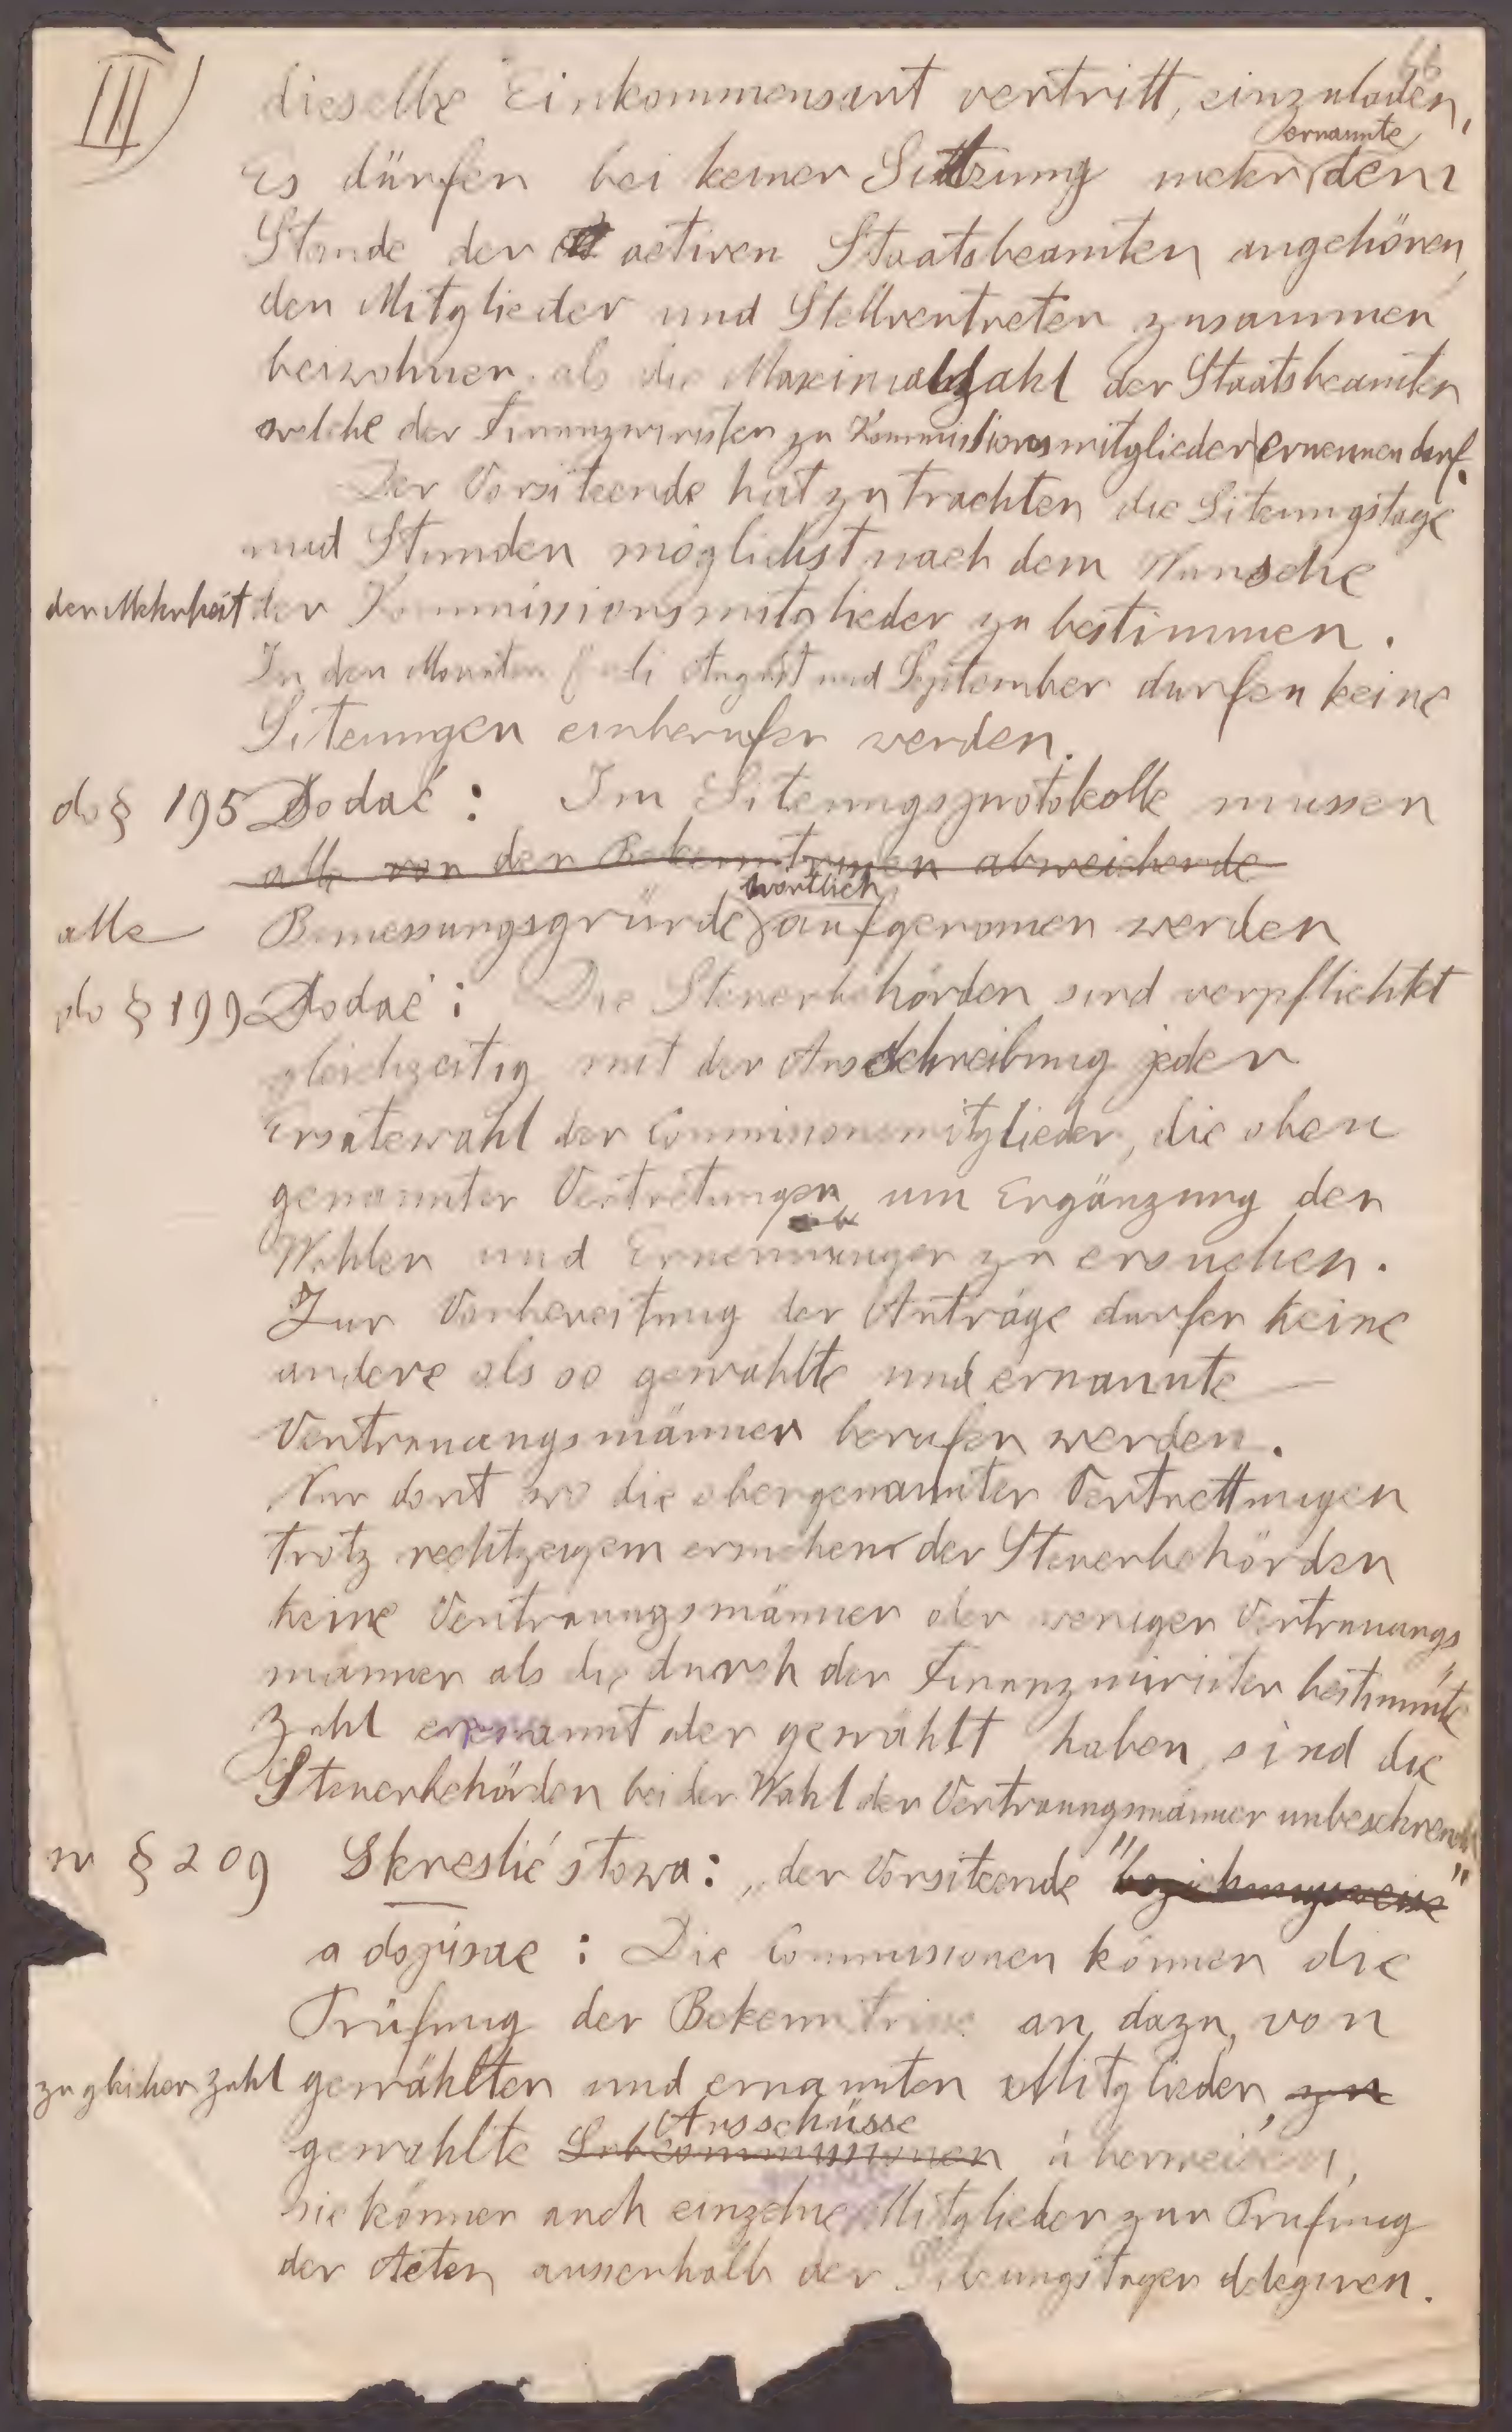 III)
66
dieselbe Einkommensart vertritt, einzuladen,
ernannte
Es dürfen bei keiner Sitzung mehr dem
Stande der activen Staatsbeamten angehören
den Mitglieder und Stellvertreter zusammen
beiwohnen als die Maximalzahl der Staatsbeamten
welche der Finanzminister zu Kommissionsmitglieder ernennen darf.
Der Vorsitzende hat zu trachten die Sitzungstage
und Stunden möglichst nach dem Wunsche
der Mehrheit der Kommissionsmitglieder zu bestimmen.
In den Monaten Juli August und September durfen keine
Sitzungen einberufen werden.
do § 195 Dodać: Im Sitzungsprotokolle müssen
alle von den Bekenntnissen abweichende
wörtlich
alle Bemessungsgründe aufgenomen werden
do § 199 Dodać: Die Steuerbehörden sind verpflichtet
gleichzeitig mit der Ausschreibung jeder
Ersatzwahl der Commissionsmitglieder, die oben
genannten Vertretungen um Ergänzung der
Wahlen und Ernennungen zu ersuchen.
Zur Vorbereitung der Anträge durfen keine
andere als so gewählte und ernannte
Vertrauangsmänner berufen werden.
Nur dort wo die obengenannten Vertrettungen
trotz rechtzeigem ersuchen der Steuerbehörden
keine Vertrauungsmänner oder weniger Vertrauangs
männer als die durch den Finanzminister bestimmte
Zahl ernannt oder gewählt haben, sind die
Steuerbehörden bei der Wahl der Vertrauungsmänner unbeschrenkt
w § 209 Skreslić słowa: „der Vorsitzende" beziehungsweise"
a dopisac: Die Commissionen können die
Prüfung der Bekenntnisse an, dazu, von
zu gleicher Zahl gewählten und ernannten Mitglieder, zu
Ausschüsse
gewählte Subcommissionen überweisen,
sie können auch einzelne Mitglieder zur Prufung
der Acten ausserhalb der Sitzungstagen delegiren.